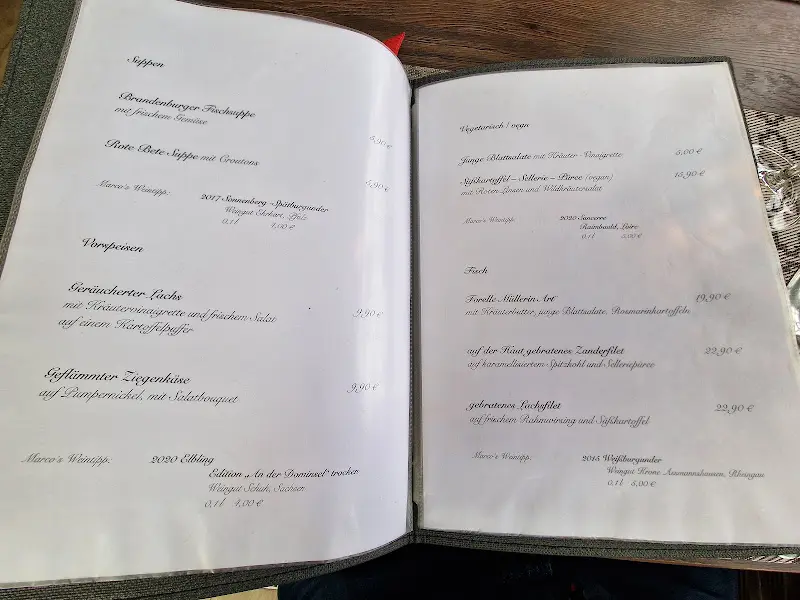 Suppen
Brandenburger Fischsuppe
mit frischem Gemüse
5,90 €
Rote Bete Suppe mit Croutons
5,90 €
Marco's Weintipp: 2017 Sonnenberg - Spätburgunder
Weingut Ehrhart, Pfalz
0,1 l 4,00 €
Vorspeisen
Geräucherter Lachs
mit Kräutervinaigrette und frischem Salat 9,90 €
auf einem Kartoffelpuffer
Geflämmter Ziegenkäse
auf Pumpernickel, mit Salatbouquet 9,90 €
Marco's Weintipp: 2020 Elbling
Edition „An der Dominsel" trocken
Weingut Schuh, Sachsen
0,1 l 4,00 €
Vegetarisch / vegan
Junge Blattsalate mit Kräuter-Vinaigrette 5,00 €
Süßkartoffel – Sellerie – Püree (vegan) 15,90 €
mit Roten Linsen und Wildkräutersalat
Marco's Weintipp: 2020 Sancerre
Raimbault, Loire
0,1 l 5,00 €
Fisch
Forelle Müllerin Art 19,90 €
mit Kräuterbutter, junge Blattsalate, Rosmarinkartoffeln
auf der Haut gebratenes Zanderfilet 22,90 €
auf karamellisiertem Spitzkohl und Selleriepüree
gebratenes Lachsfilet 22,90 €
auf frischem Rahmwirsing und Süßkartoffel
Marco's Weintipp: 2015 Weißburgunder
Weingut Krone Assmannshausen, Rheingau
0,1 l 5,00 €